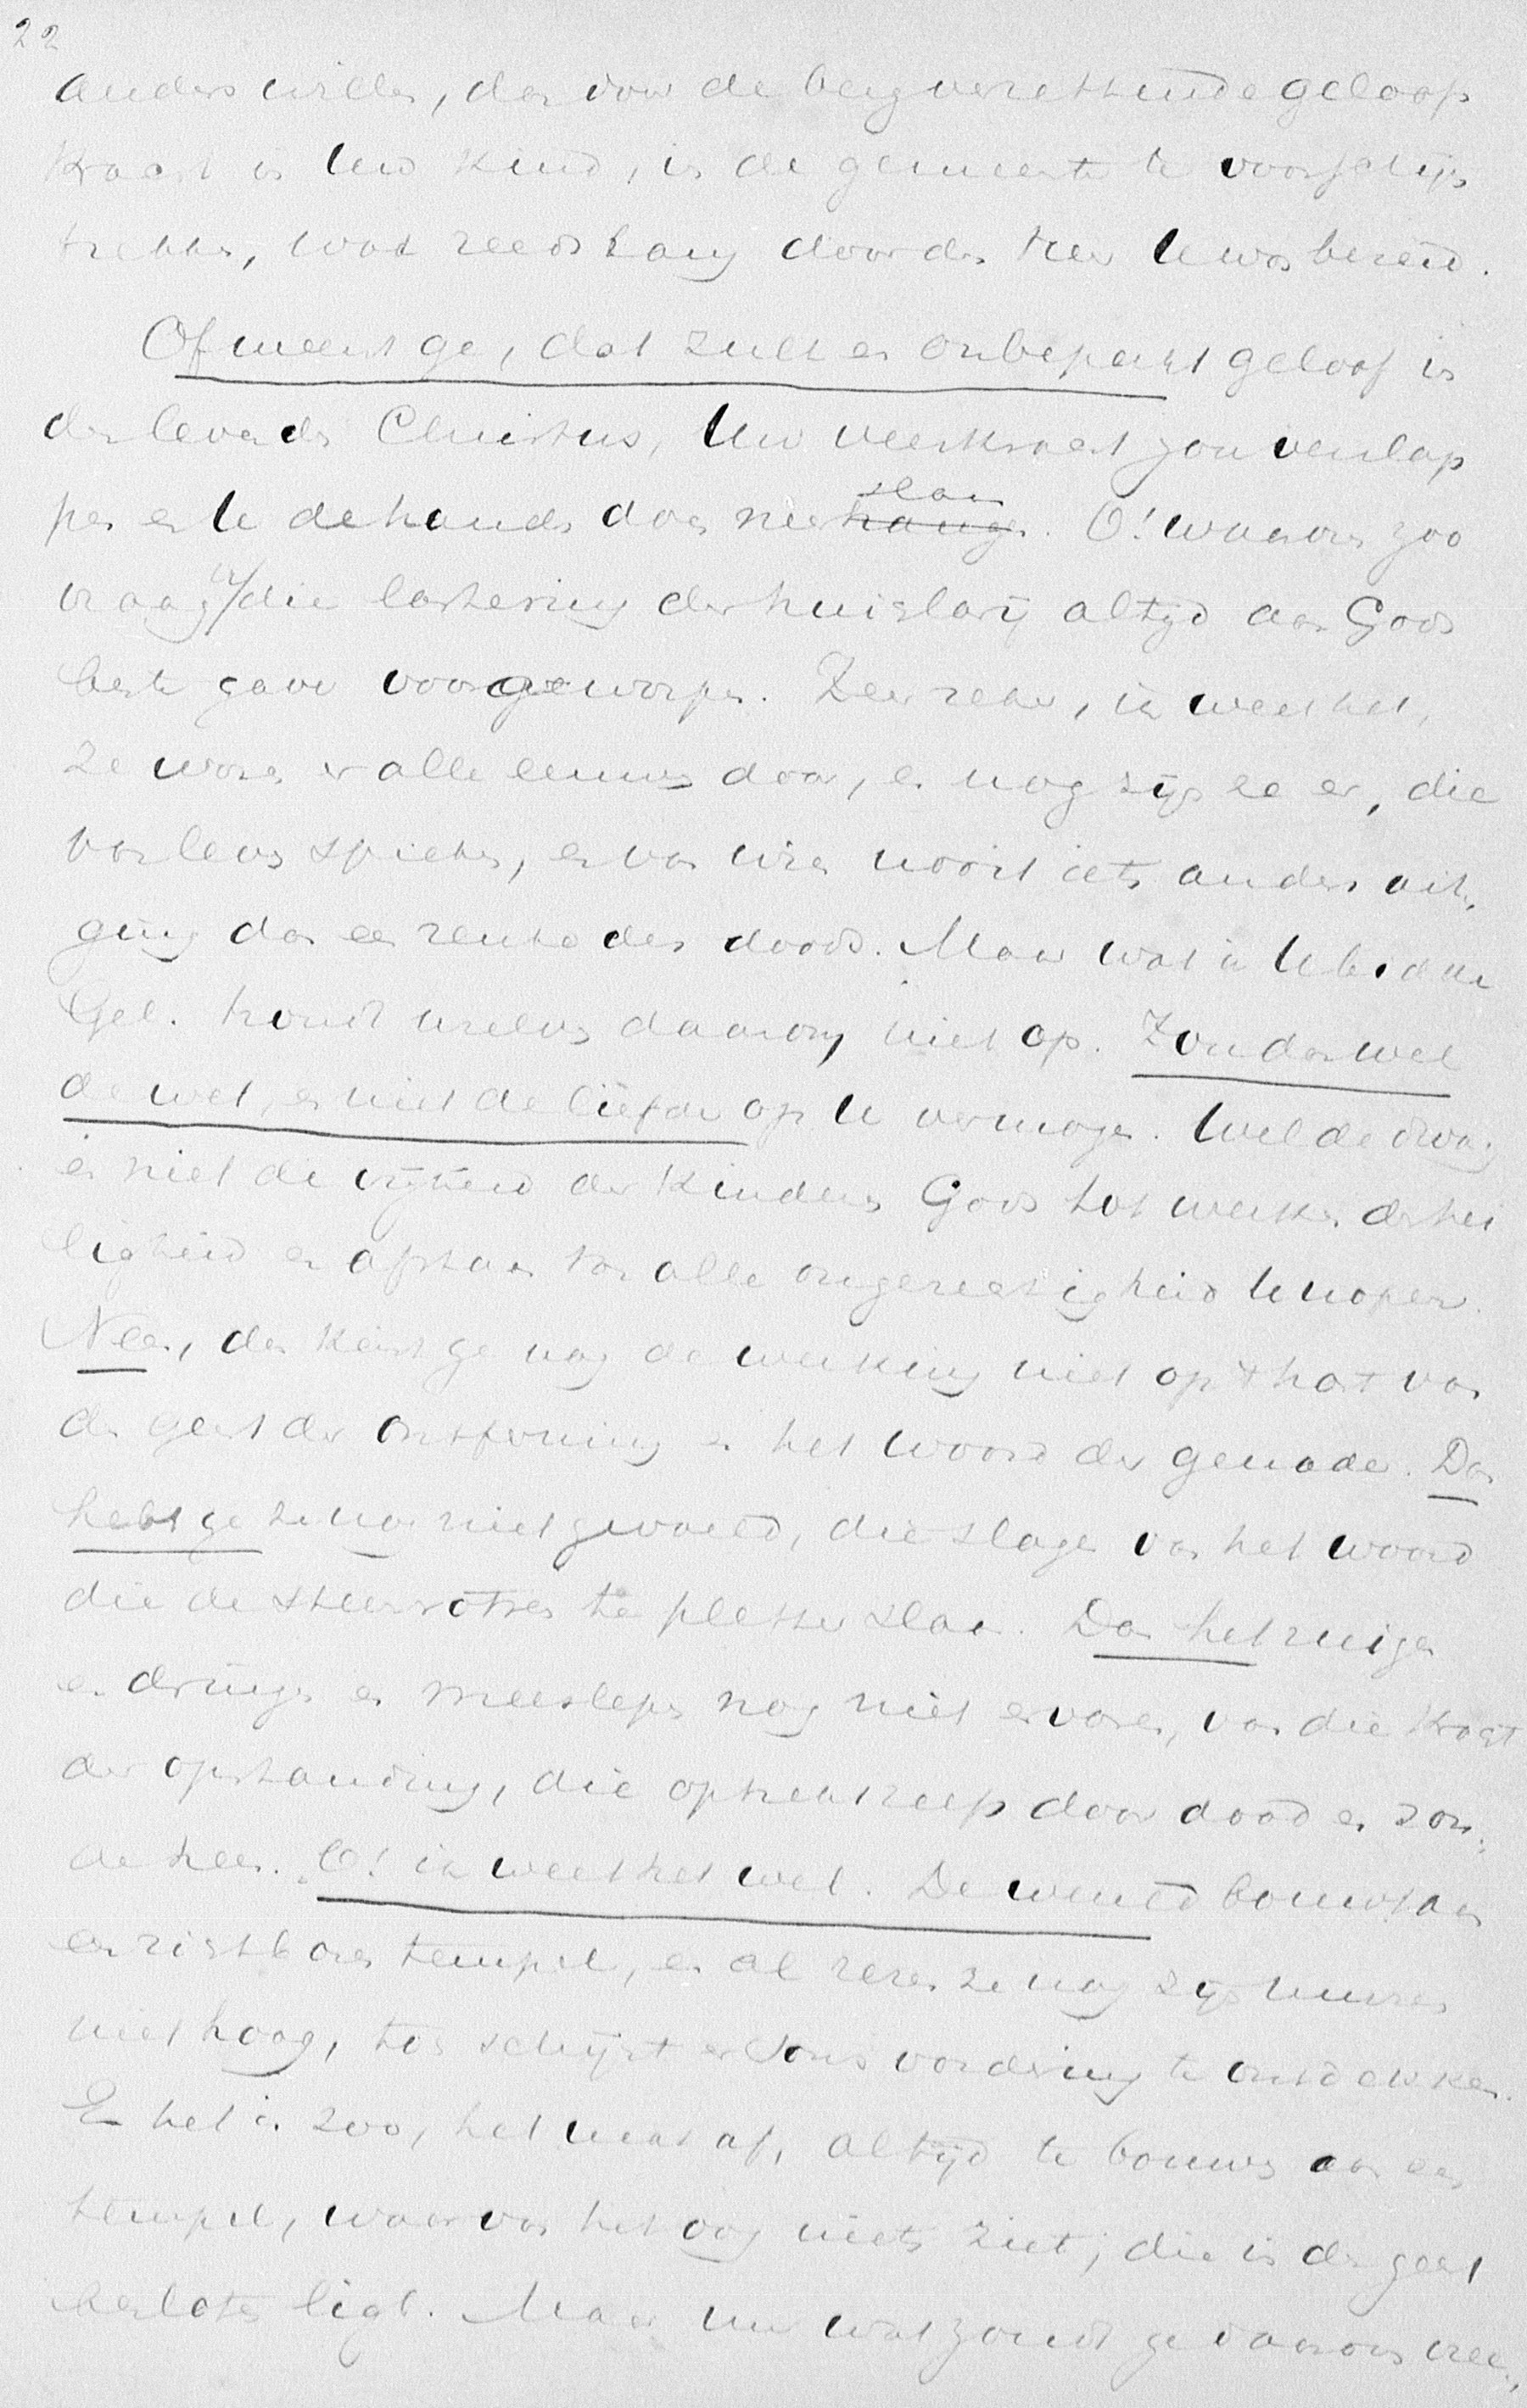 22
anders willen, dan door de bergverzettende geloofs
kracht in Uw kind, in de gemeente te voorschijn
trekken, wat reeds lang door den Heer U was bereid.
Of meent ge, dat zulk een onbeperkt geloof in
den levenden Christus, Uw veerkracht zou verslap
pen en U de handen doen neerslaan. O! waarom zoo
vraag ik die lastering der huichlarij altijd aan Gods
beste gave voorgeworpen. Zeer zeker, ik weet het,
ze waren er alle eeuwen door, en nog zijn ze er, die
van leven spreken, en van wien nooit iets anders uit-
ging dan een reuke des doods. Maar wat ik U bidde
Gel. houdt uzelven daarom niet op. Zou dan wel
de wet, en niet de liefde op U vermogen. Wel de dwang
en niet de vrijheid der kinderen Gods tot werken der hei
ligheid en afstaan van alle ongerechtigheid U nopen.
Neen, dan kent ge nog de werking niet op 't hart van
den geest der ontferming en het woord der genade. Dan
hebt ge ze nog niet gevoeld, die slagen van het woord
die de steenrotsen te pletter slaan. Dan het zuigen
en dringen en meeslepen nog niet ervaren, van die kragt
der opstanding, die optrekt zelfs door dood en zon-
de heen. O! ik weet het wel. De wereld bouwt aan
een zichtbaren tempel, en al rezen ze nog zijn muren
niet hoog, toch schijnt er soms vordering te ontdekken.
En het is zoo, het mat af, altijd te bouwen aan een
tempel, waarvan het oog niets ziet; die in den geest
besloten ligt. Maar nu wat zoudt ge daarom vree-